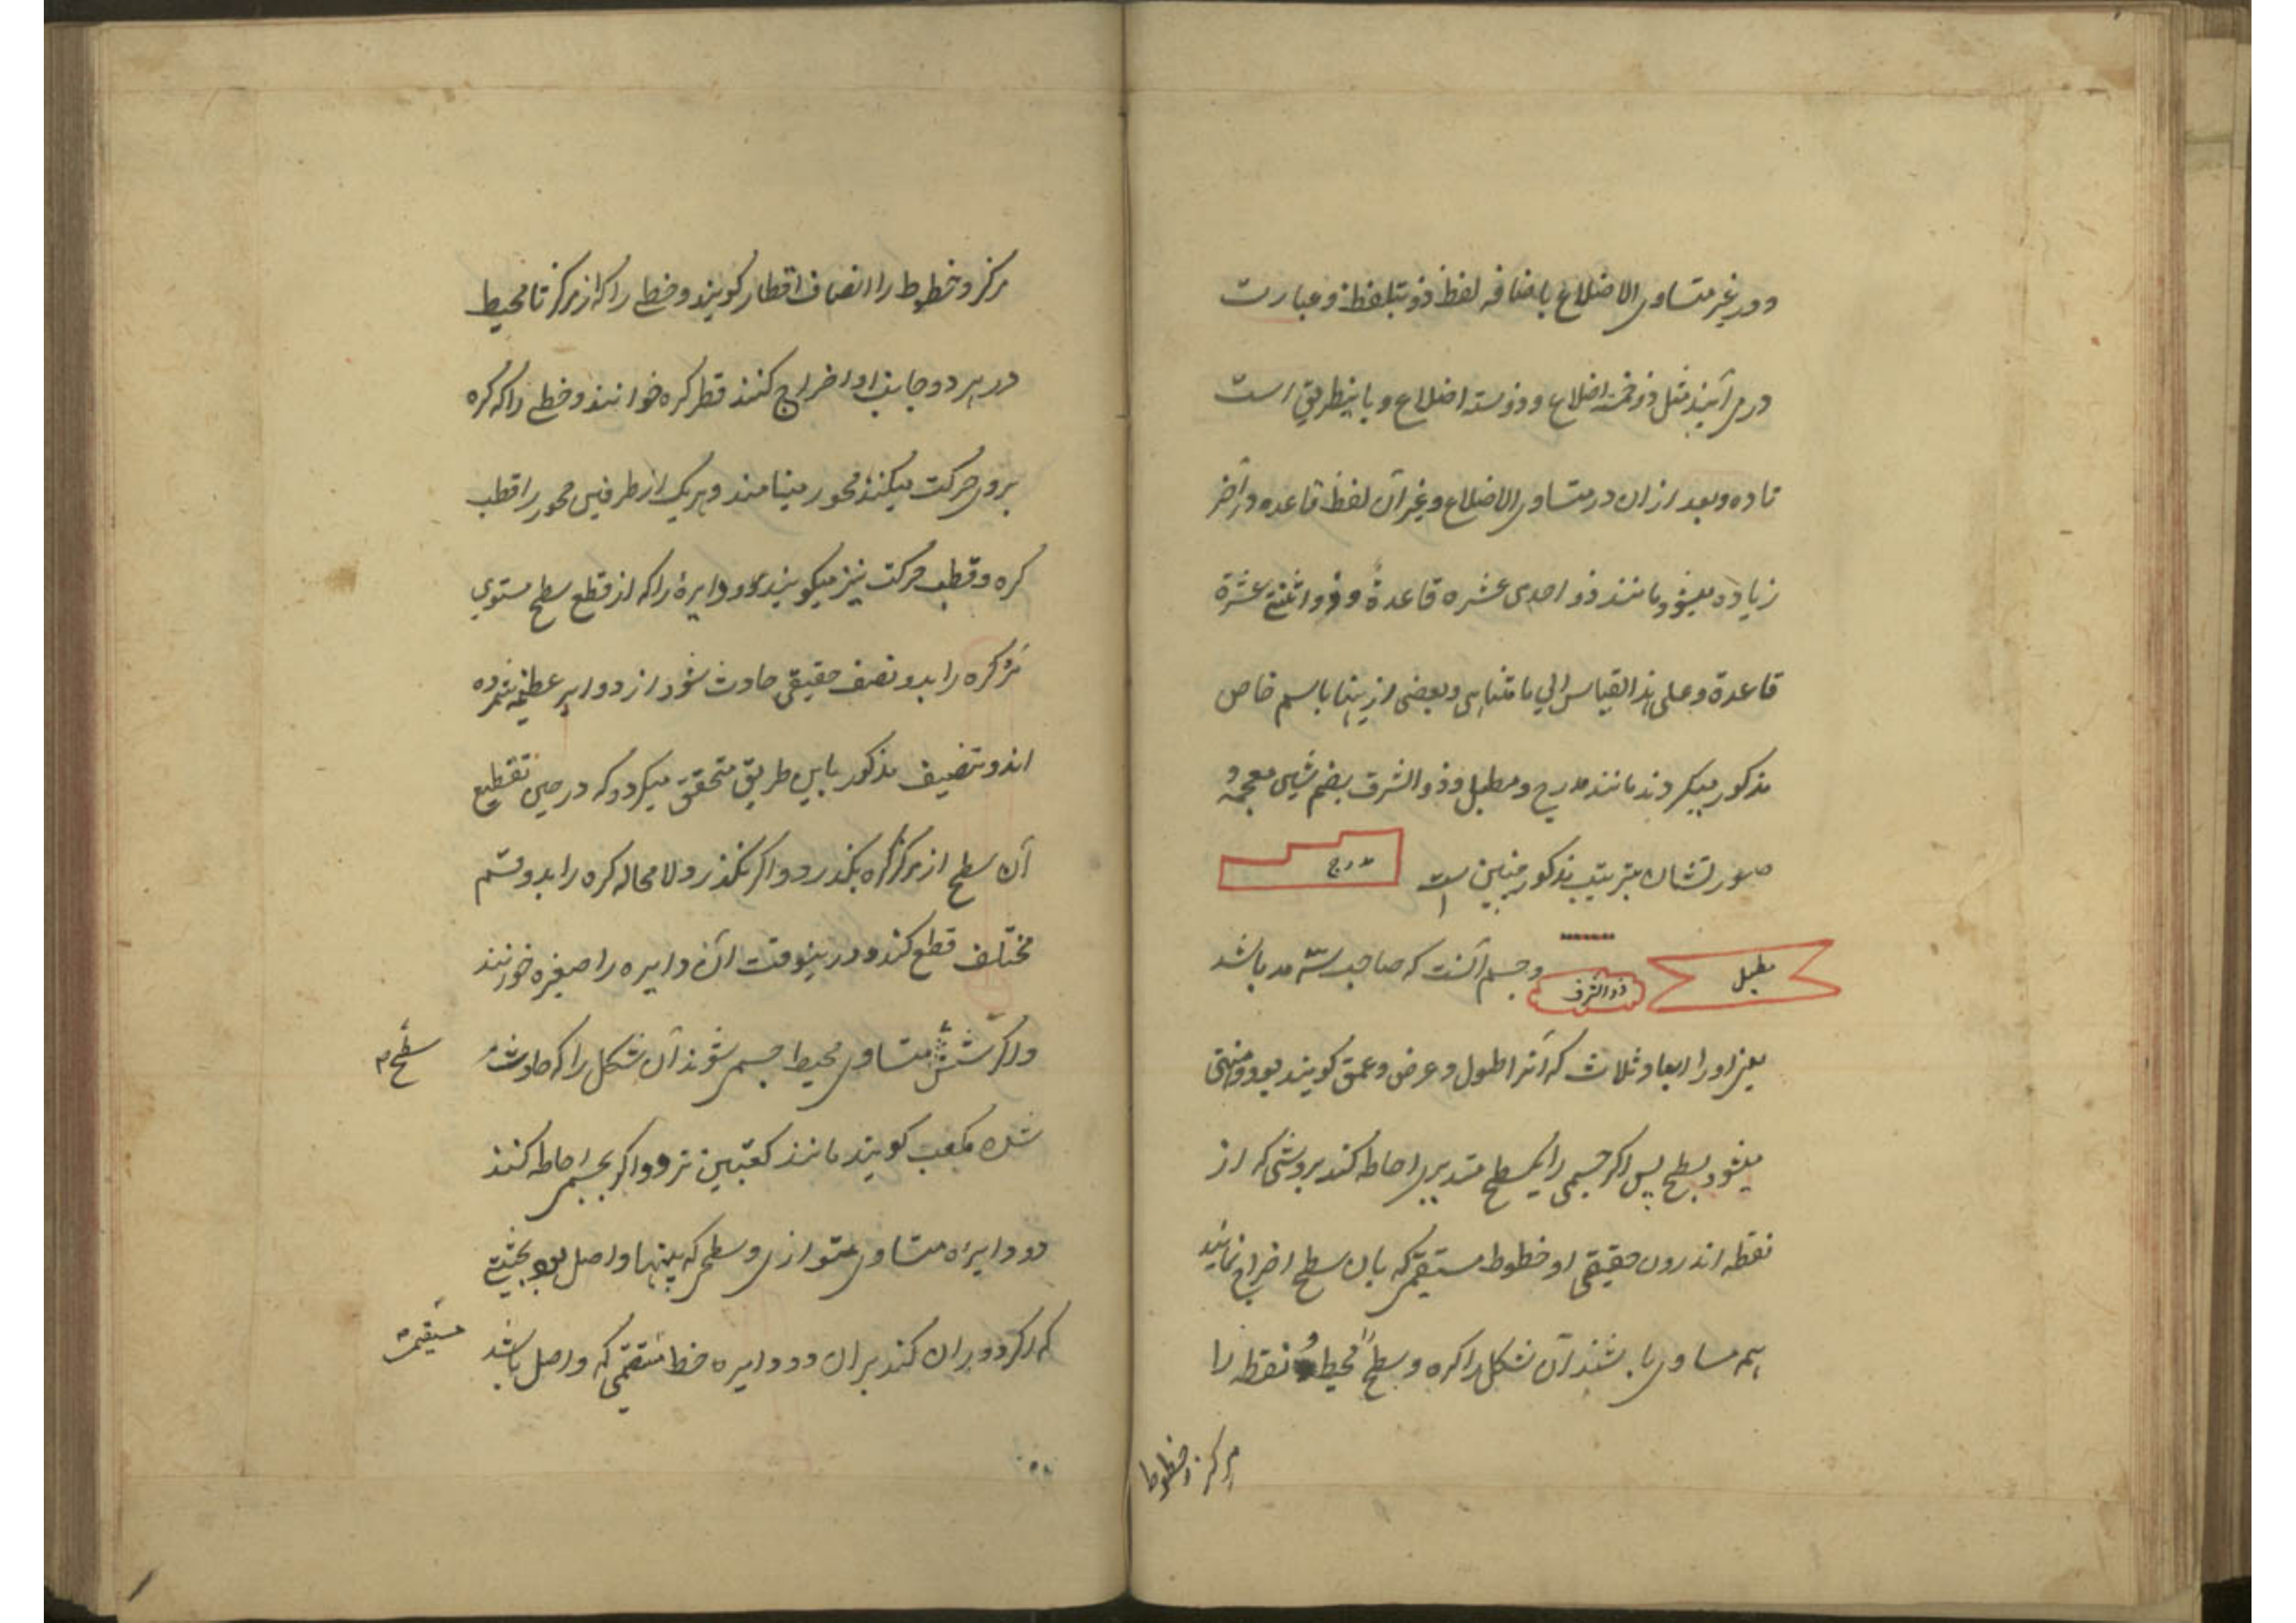 و در غیر متساوی الاضلاع باضافه لفظ ذو بتلفظ و عبارت
در می آیند مثل ذو خمسة اضلاع و ذو ستة اضلاع و باینطریق است
تا ده و بعد ازان در متساوی الاضلاع و غیر آن لفظ قاعده در آخر
زیاده میشود مانند ذو احدی عشره قاعدة و ذو اثنتی عشرة
قاعدة و علی هذا القیاس الی ما متناهی و بعضی ازینها باسم خاص
مذکور میگردند مانند مدرج و مطبل و ذو الشرف بضم شین معجمه و
صورتشان بترتیب مذکور مبین است
مدرج
مطبل
ذو الشرف
و جسم آنست که صاحب سه مد باشد
یعنی او را ابعاد ثلاث که آنرا طول و عرض و عمق گویند بود و منتهی
میشود بسطح پس اگر جسمی را یک سطح مستدیری احاطه کند بروشی که از
نقطه اندرون حقیقی او خطوط مستقیمی که بان سطح اخراج نمایند
همه مساوی باشند آن شکل را کره و سطح را محیط و نقطه را
مرکز و خطوط
مرکز و خطوط را انصاف اقطار گویند و خطی را که از مرکز تا محیط
در هر دو جانب او اخراج کنند قطر کره خوانند و خطی را که کره
بروی حرکت میکند محور مینامند و هر یک از طرفین محور را قطب
کره و قطب حرکت نیز میگویند و دایرۀ را که از قطع سطح مستوی
مر کره را بدو نصف حقیقی حادث شود از دوایر عظیمه شمرده
اند و تنصیف مذکور باین طریق متحقق میگردد که در حین تقطیع
آن سطح از مرکز کره بگذرد و اگر نگذرد لا محاله کره را بدو قسم
مختلف قطع کند و درینوقت آن دایره را صغیره خوانند
و اگر شش متساوی محیط جسمی شوند آن شکل را که حادث
سطح
شده مکعب گویند مانند کعبتین نرد و اگر بجسمی احاطه کنند
دو دایره متساوی متوازی و سطحی که بینهما واصل بود بحیثیتی
که اگر دوران کند بران دو دایره خط مستقیمی که واصل باشد
مستقیمی